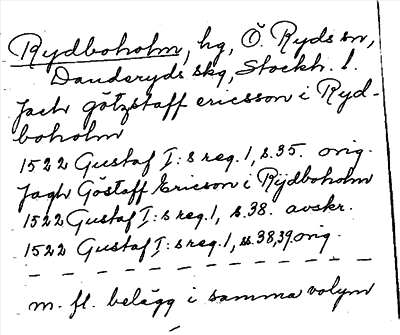 Rydboholm, hg, Ö. Ryds sn,
Danderyds skg, Stockh. l.
Jach götzstaff ericsson i Ryd-
boholm
1522 Gustaf I:s reg. 1, s. 35. orig.
Jagh Göstaff Ericson i Rydboholm
1522 Gustaf I:s reg. 1, s. 38. avskr.
1522 Gustaf I:s reg. 1, ss. 38, 39 orig.
m. fl. belägg i samma volym